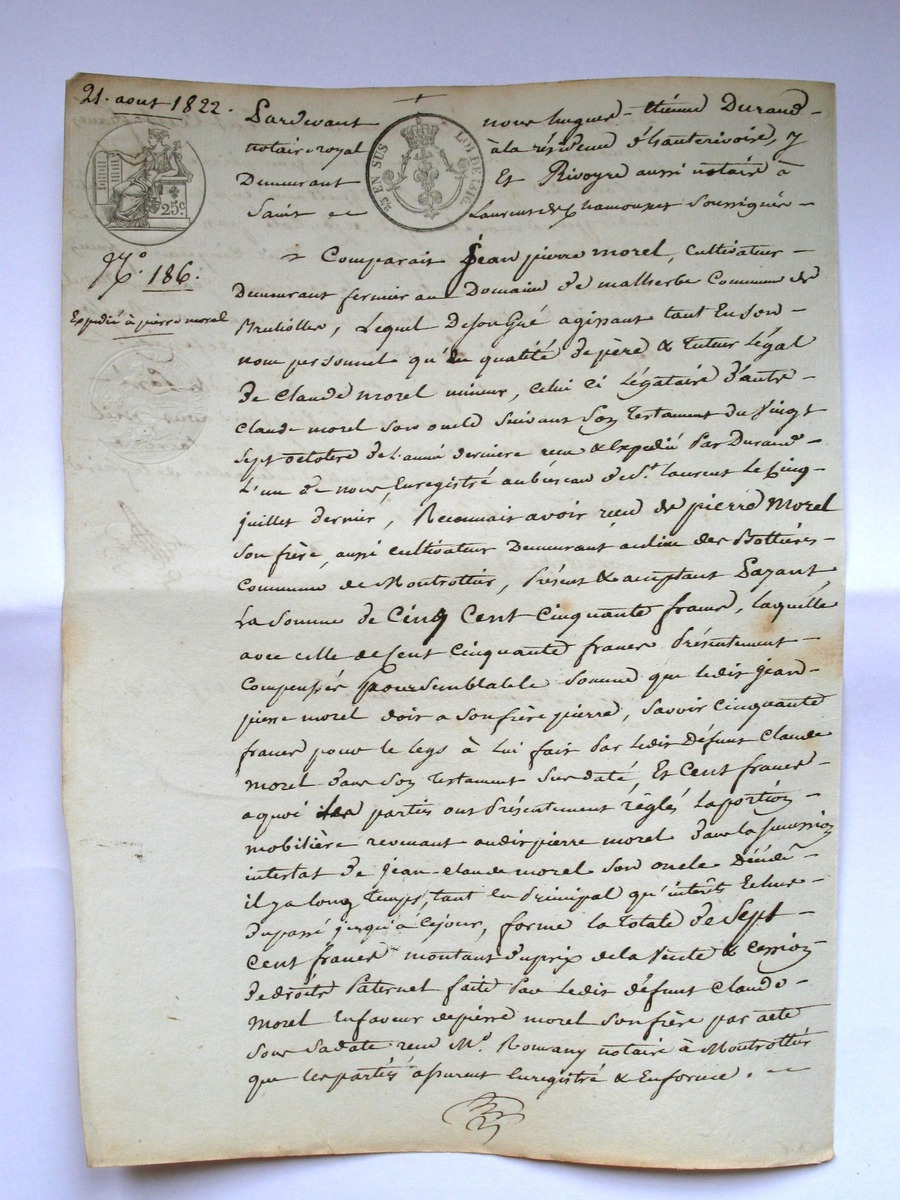 21. aout 1822.
Pardevant nous hugues-Etienne Durand-
notaire royal à la résidence d'hauterivoire, y
Demeurant Et Rivoyre aussi notaire à
Saint Laurent de Chamousset Soussignés-
25 EN SUS LOI DE 1816.
25c.
N.o 186.
Expedié à pierre morel
Comparait Jean pierre morel, Cultivateur-
Demeurant fermier au Domaine de malherbe Commune de
Brulioles, Lequel Agissant tant En son-
nom personnel qu'en qualité de père & tuteur Légal
de Claude morel mineur, celui ci Légataire d'autre-
Claude morel son oncle Suivant Son Testament du Vingt
Sept octobre de l'année dernière recu & Expedié Par Durand-
L'un de nous, Enregistré au bureau de St. Laurent Le Cinq-
juillet dernier, Reconnait avoir recu de pierre Morel
Son frère, aussi cultivateur Demeurant au lieu des Bottières-
Commune de Montrottier, Présent & acceptant Payant,
La Somme de Cinq Cent Cinquante francs, laquelle
avec celle de Cent Cinquante francs Présentement-
Compensés Pour semblable Somme que ledit jean-
pierre morel doit a Son frère pierre, Savoir Cinquante
francs pour le legs à Lui fait Par ledit Défunt Claude
morel dans Son Testament Sus daté, Et Cent francs-
aquoi les parties ont Présentement réglés La portion
mobilière revenant audit pierre morel dans la Succession
intestat de Jean-claude morel Son oncle Décédé-
il ya long temps, tant En Principal qu'intérêts Echus-
Dupassé jusqu'à Cejour, forme la totale de Sept-
Cent francs montant Duprix de la Vente & Cession
de droits Paternel faite Par Ledit défunt Claude-
Morel En faveur de pierre morel Son frère par acte
Sous Sa date recu Me. Romany notaire à Montrottier
que les parties assurent Enregistré & En forme.-